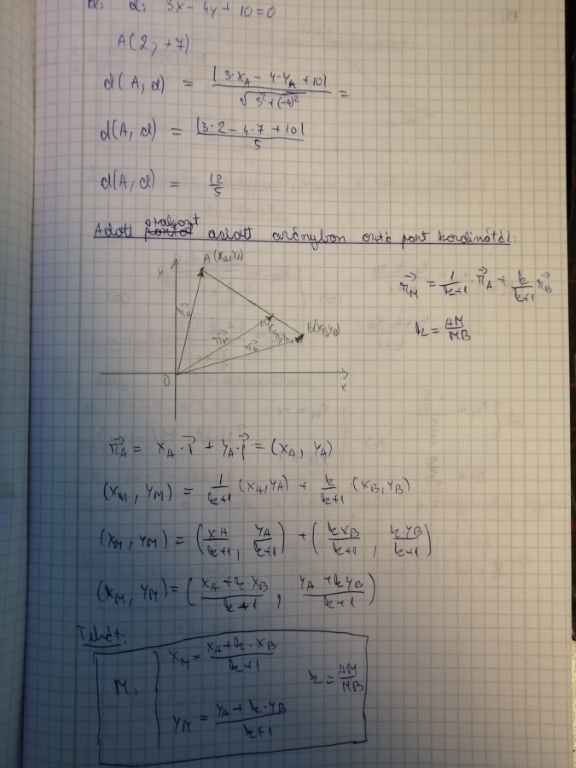 d: 3x - 4y + 10 = 0
A(2; +7)
d(A, d) = |3·x_A - 4·y_A + 10| / √(3² + (-4)²) =
d(A, d) = |3·2 - 4·7 + 10| / 5
d(A, d) = 12/5
Adott szakaszt adott arányban osztó pont kordinátái:
A(x_A, y_A)
B(x_B, y_B)
O
x
r⃗_M = 1/(k+1) · r⃗_A + k/(k+1) r⃗_B
k = AM/MB
r⃗_A = x_A · i⃗ + y_A · j⃗ = (x_A, y_A)
(x_M, y_M) = 1/(k+1) (x_A, y_A) + k/(k+1) (x_B, y_B)
(x_M, y_M) = (x_A/(k+1), y_A/(k+1)) + (k x_B/(k+1), k y_B/(k+1))
(x_M, y_M) = ((x_A + k·x_B)/(k+1), (y_A + k y_B)/(k+1))
Tehát:
M: x_M = (x_A + k·x_B)/(k+1)
k = AM/MB
y_M = (y_A + k·y_B)/(k+1)